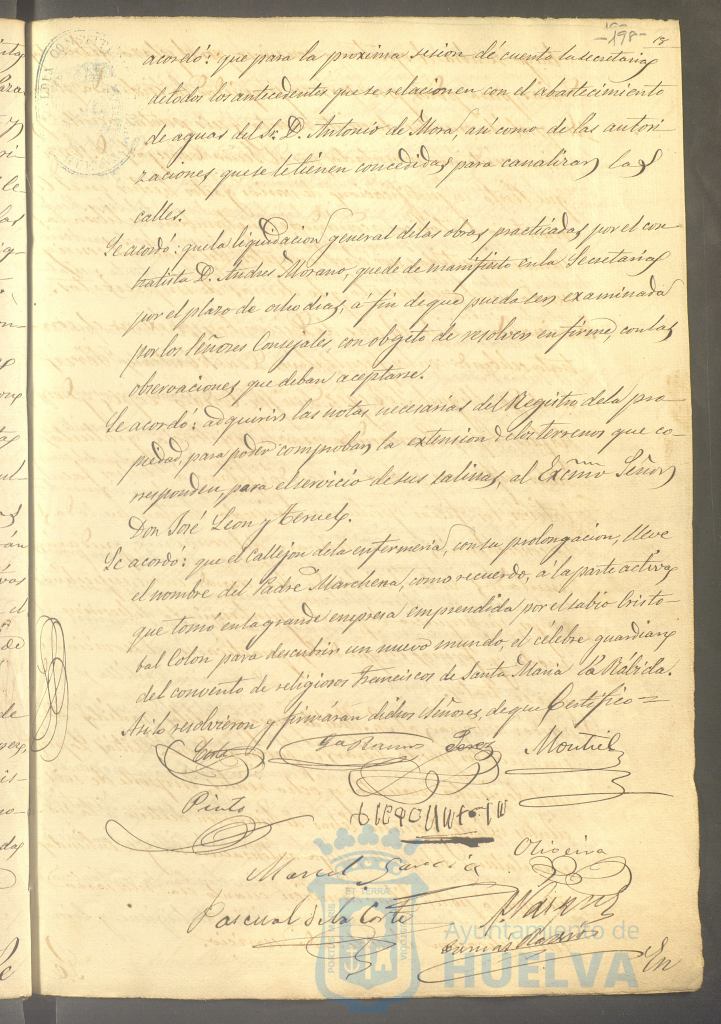 -198-
acordó: que para la proxima sesion dé cuenta la secretaria
de todos los antecedentes que se relacionen con el abastecimiento
de aguas del Sr. D. Antonio de Mora, asi como de las autori
zaciones que se le tienen concedidas para canalizar las
calles.
Se acordó: que la liquidacion general de las obras practicadas por el con
tratista D. Andres Morano, quede de manifiesto en la Secretaria
por el plazo de ocho dias, á fin de que pueda ser examinada
por los Señores Consejales, con obgeto de resolver en firme, con las
observaciones que deban aceptarse.
Se acordó: adquirir las notas necesarias del Registro de la pro-
piedad, para poder comprobar la extension de los terrenos que co-
rresponden, para el servicio de sus salinas, al Excmo Señor
Don José Leon y Teruel.
Se acordó: que el callejon de la enfermeria, con su prolongacion, lleve
el nombre del Padre Marchena, como recuerdo, á la parte activa
que tomó en la grande empresa emprendida por el sabio Cristo-
bal Colon para descubrir un nuevo mundo, el célebre guardian
del convento de religiosos franciscos de Santa Maria la Rábida.
Asi lo resolvieron y firmáran dichos Señores, de que Certifico=
Montiel
Pinto
Oliveira
García
Pascual de la Corte
En
Ayuntamiento de
HUELVA